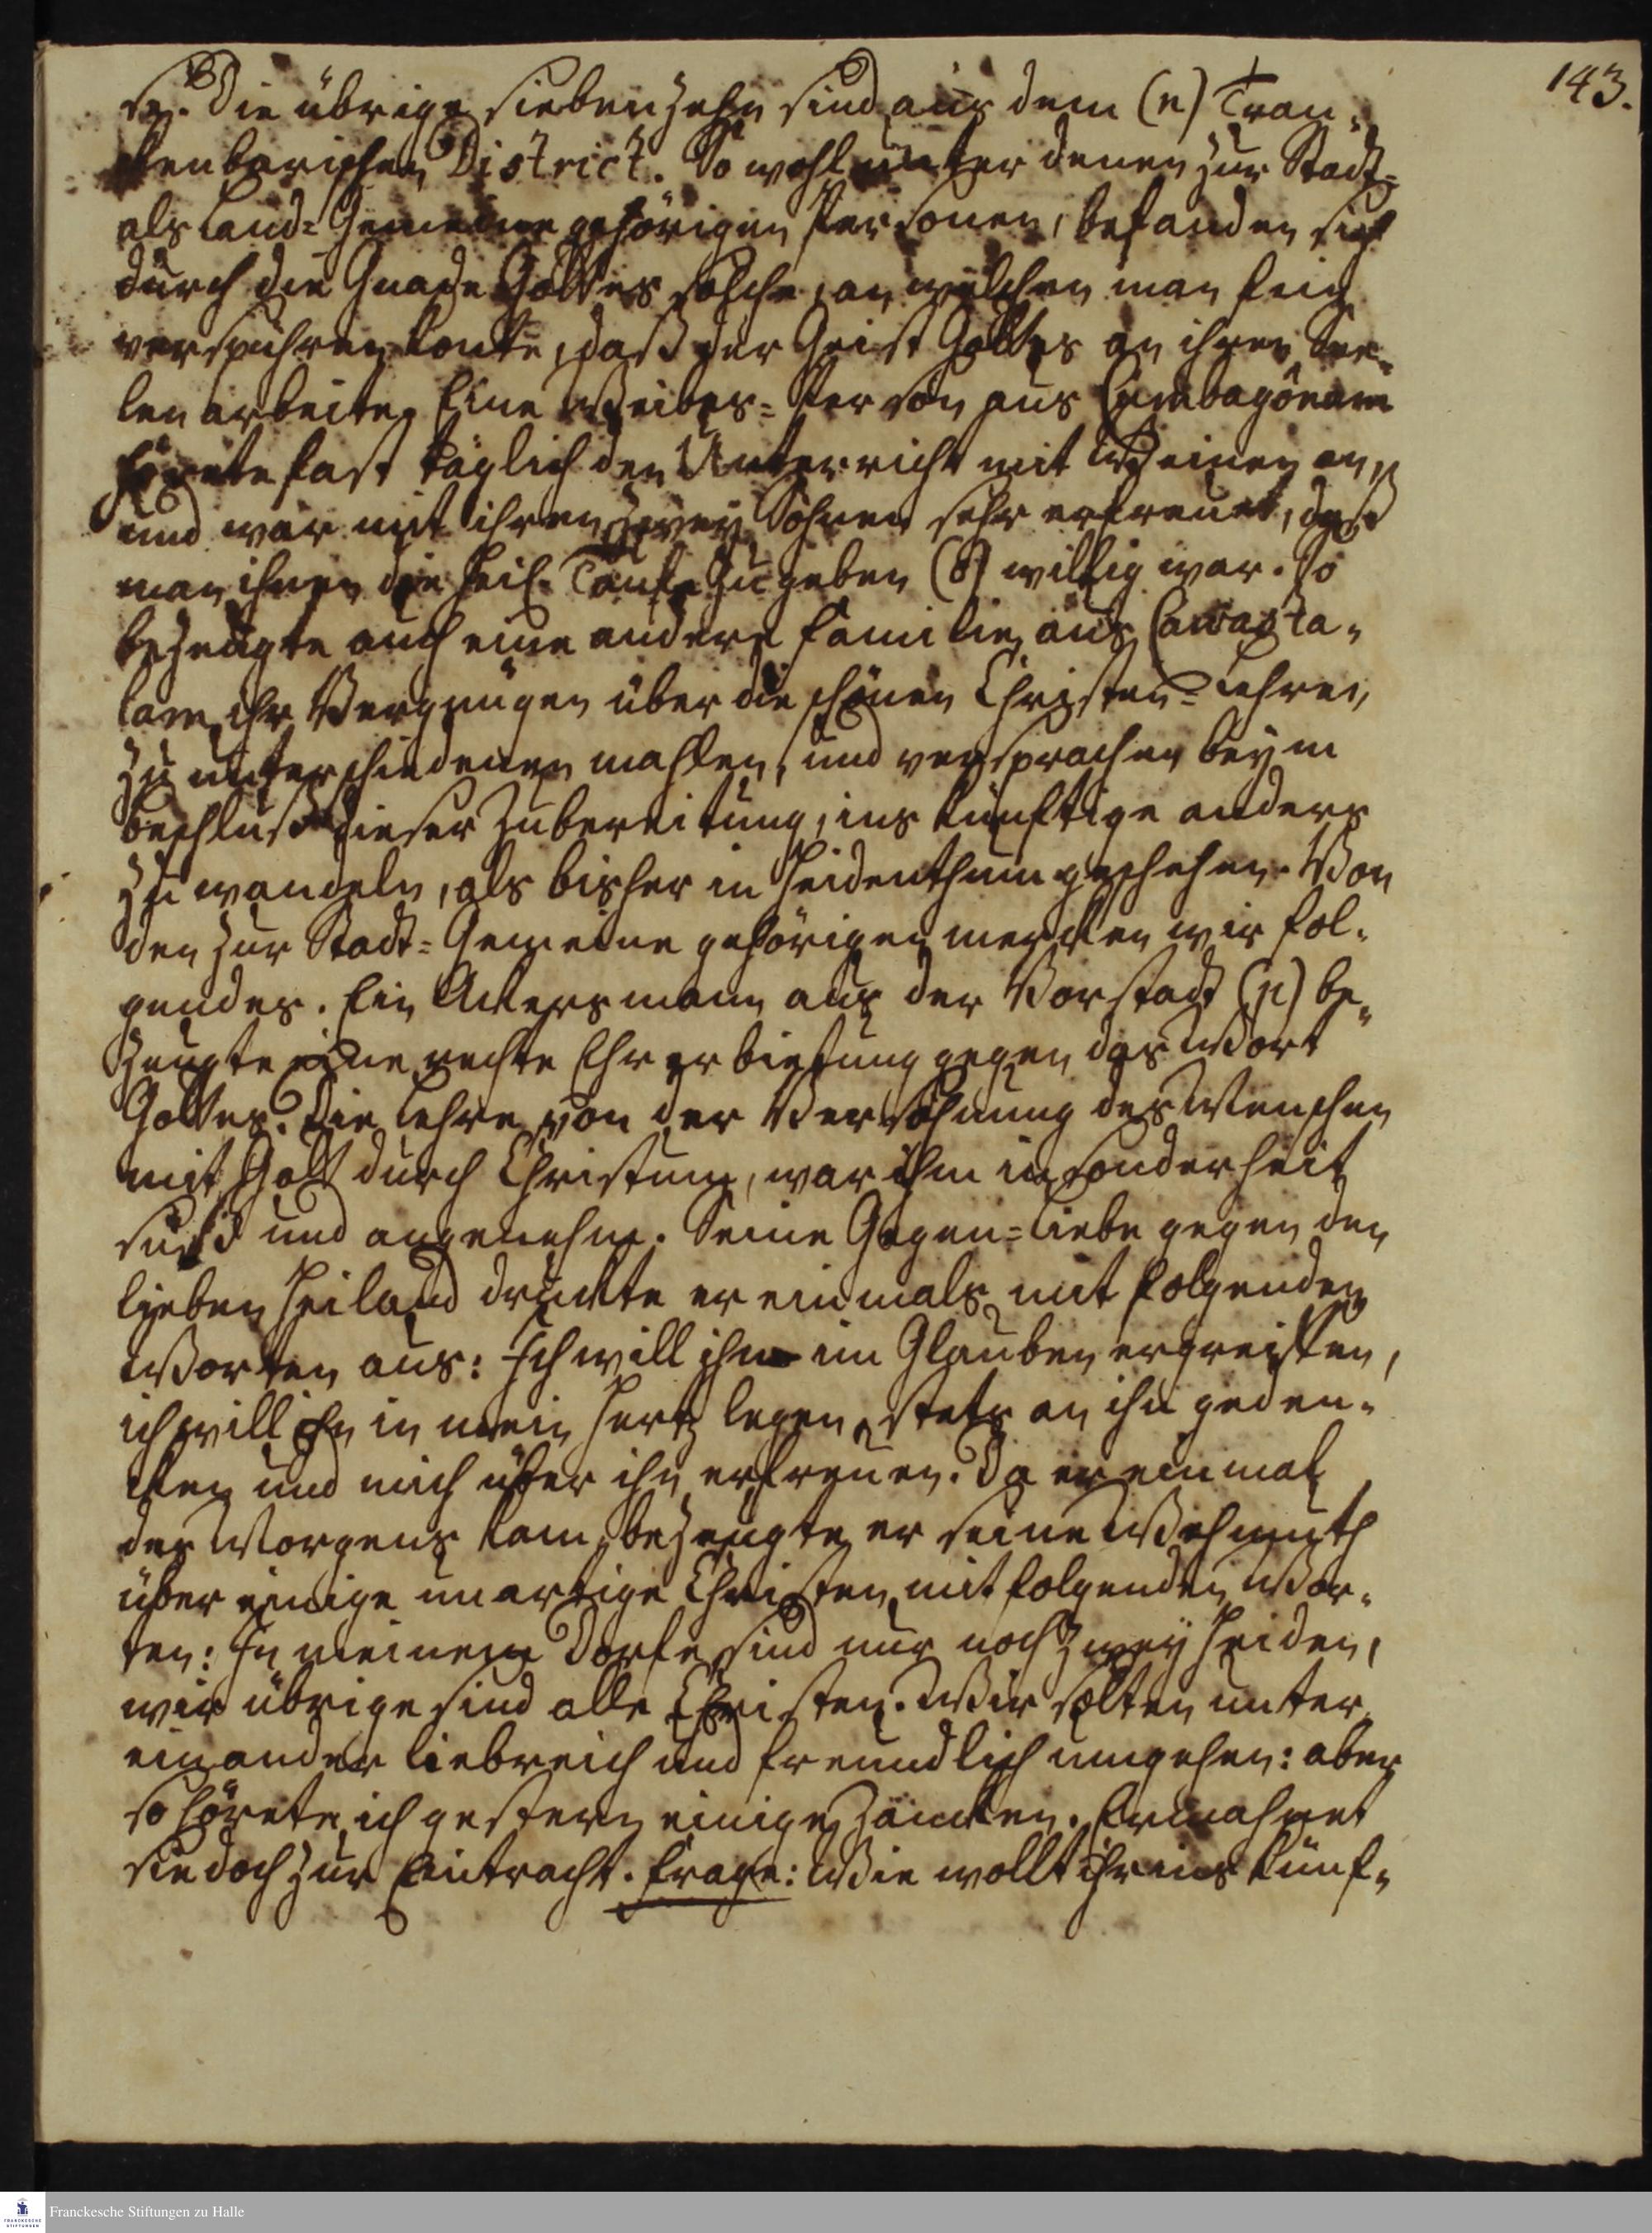 143.
se. Die übrige siebenzehn sind aus dem (n) Tran-
kenbarischen District. So wohl unter denen zur Stadt-
als Land-Gemeine gehörigen Personen, befanden sich
durch die Gnade Gottes solche, an welchen man fein
verspühren konte, daß der Geist Gottes an ihren See-
len arbeite. Eine Weibes-Person aus Cumbagônam
hörete fast täglich den Unterricht mit Weinen an,
und war mit ihren zwey Söhnen sehr erfreuet, daß
man ihnen die heil. Taufe zu geben (8) willig war. So
bezeugte auch eine andere Familie aus Cawasta-
lam ihr Vergnügen über die schönen Christen-Lehren,
zu unterschiedenen mahlen, und versprachen beym
Beschluß dieser Zubereitung, ins künftige anders
zu wandeln, als bisher in Heidenthum geschehen. Von
den zur Stadt-Gemeine gehörigen mercken wir fol-
gendes. Ein Ackersmann aus der Vorstadt (n) be-
zeugte eine rechte Ehrerbietung gegen das Wort
Gottes. Die Lehre von der Versöhnung des Menschen
mit Gott durch Christum, war ihm insonderheit
süß und angenehm. Seine Gegen-Liebe gegen den
lieben Heiland drückte er einmals mit folgenden
Worten aus: Ich will ihn im Glauben ergreiffen,
ich will ihn in mein Hertz legen, stets an ihn geden-
cken und mich über ihn erfreuen. Da er einmal
des Morgens kam, bezeugte er seine Wehmuth
über einige unartige Christen mit folgenden Wor-
ten: In meinem Dorfe sind nur noch zwey Heiden,
wir übrige sind alle Christen. Wir solten unter
einander liebreich und freundlich umgehen: aber
so hörete ich gestern einige zancken. Ermahnet
sie doch zur Eintracht. Frage: Wie wollt ihr ins künf-
FRANCKESCHE STIFTUNGEN
Franckesche Stiftungen zu Halle